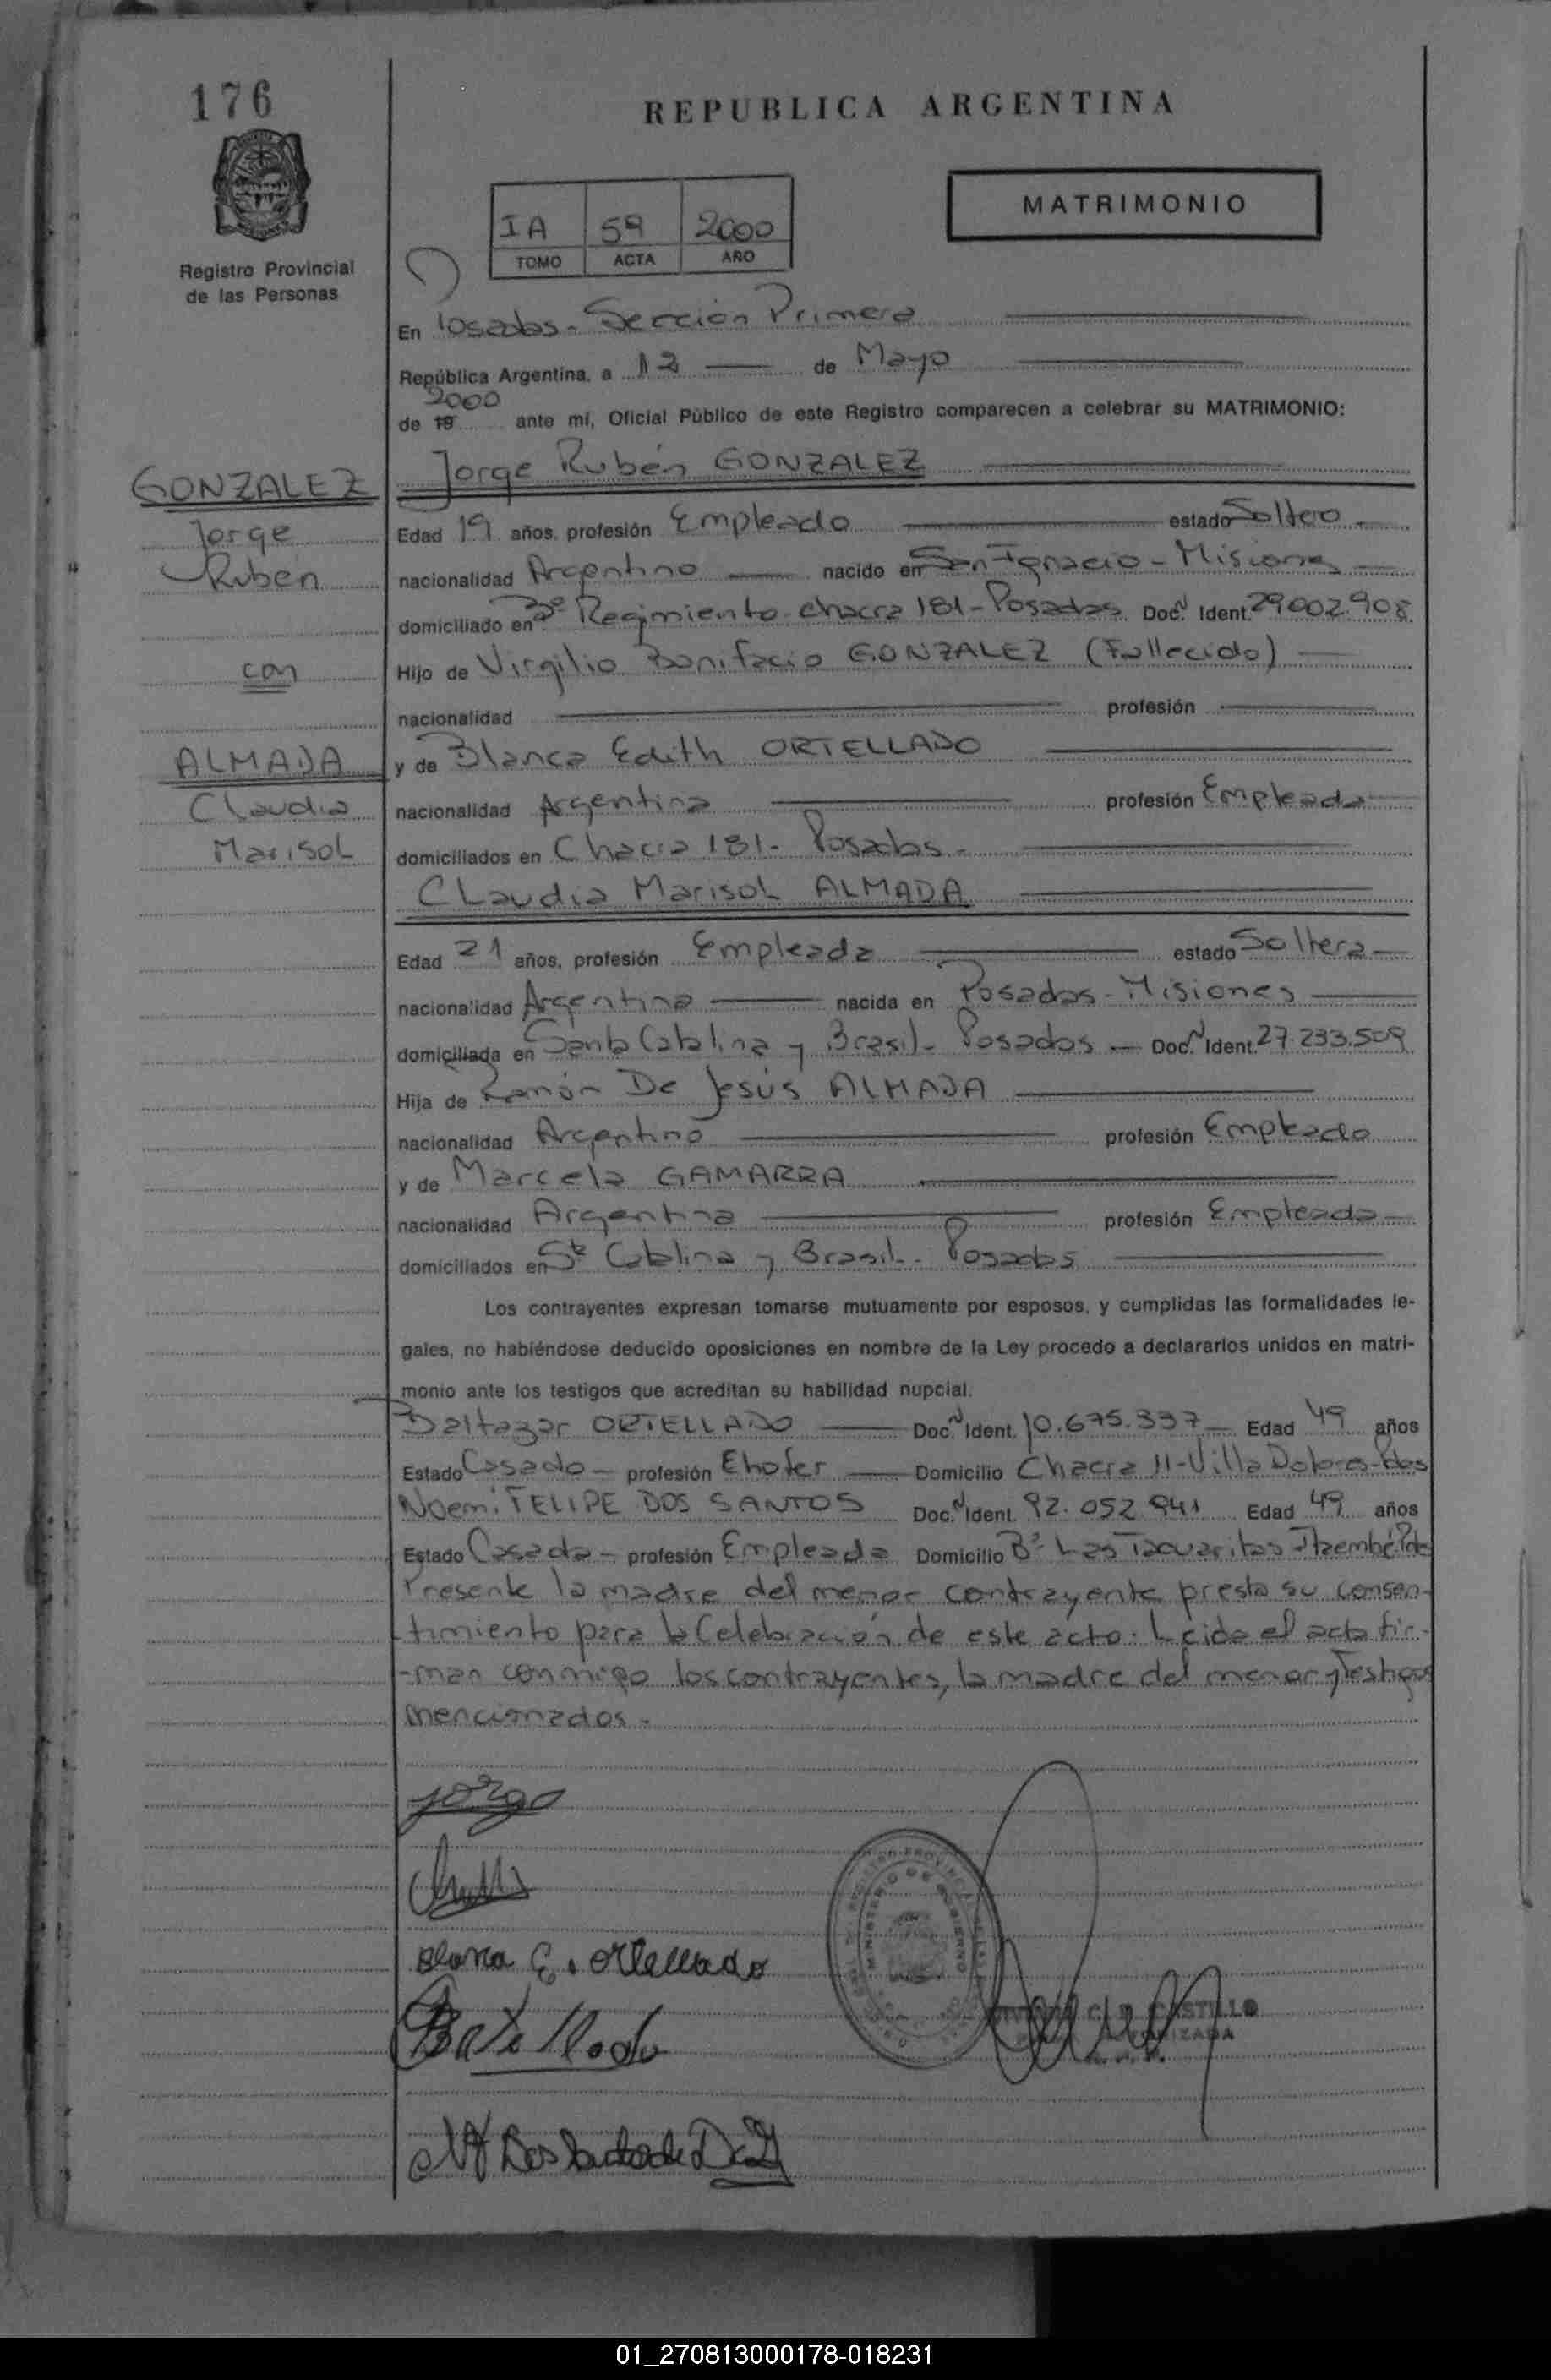 176
REPUBLICA ARGENTINA
MATRIMONIO
IA 59 2000
TOMO ACTA AÑO
Registro Provincial
de las Personas
En Posadas - Sección Primera
República Argentina, a 12 de Mayo
2000
de 19 ante mí, Oficial Público de este Registro comparecen a celebrar su MATRIMONIO:
Jorge Rubén GONZALEZ
GONZALEZ
Jorge
Ruben
con
ALMADA
Claudia
Marisol
Edad 19 años, profesión Empleado estado Soltero
nacionalidad Argentino nacido en San Ignacio - Misiones
domiciliado en Regimiento chacra 181 - Posadas Doc. N Ident. 29.002.908
Hijo de Virgilio Bonifacio GONZALEZ (Fallecido)
nacionalidad profesión
y de Blanca Edith ORTELLADO
nacionalidad Argentina profesión Empleada
domiciliados en Chacra 181 - Posadas -
Claudia Marisol ALMADA
Edad 21 años, profesión Empleada estado Soltera
nacionalidad Argentina nacida en Posadas - Misiones
domiciliada en Santa Catalina y Brasil - Posadas Doc. N Ident. 27.233.509
Hija de Ramón De Jesús ALMADA
nacionalidad Argentino profesión Empleado
y de Marcela GAMARRA
nacionalidad Argentina profesión Empleada
domiciliados en Sta Catalina y Brasil - Posadas
Los contrayentes expresan tomarse mutuamente por esposos, y cumplidas las formalidades le-
gales, no habiéndose deducido oposiciones en nombre de la Ley procedo a declararlos unidos en matri-
monio ante los testigos que acreditan su habilidad nupcial.
Baltazar ORTELLADO Doc. N Ident. 10.675.337 Edad 49 años
Estado Casado - profesión Chofer Domicilio Chacra 11 - Villa Dolores - Pdas
Noemi FELIPE DOS SANTOS Doc. N Ident. 92.052.941 Edad 49 años
Estado Casada - profesión Empleada Domicilio B° Las Tacuaritas Itaembé Pdas
Presente la madre del menor contrayente presta su consen-
timiento para la Celebración de este acto. Leida el acta fir-
-man conmigo los contrayentes, la madre del menor y Testigos
mencionados.
Jorge
Blanca E. Ortellado
CASTILLO
01_270813000178-018231